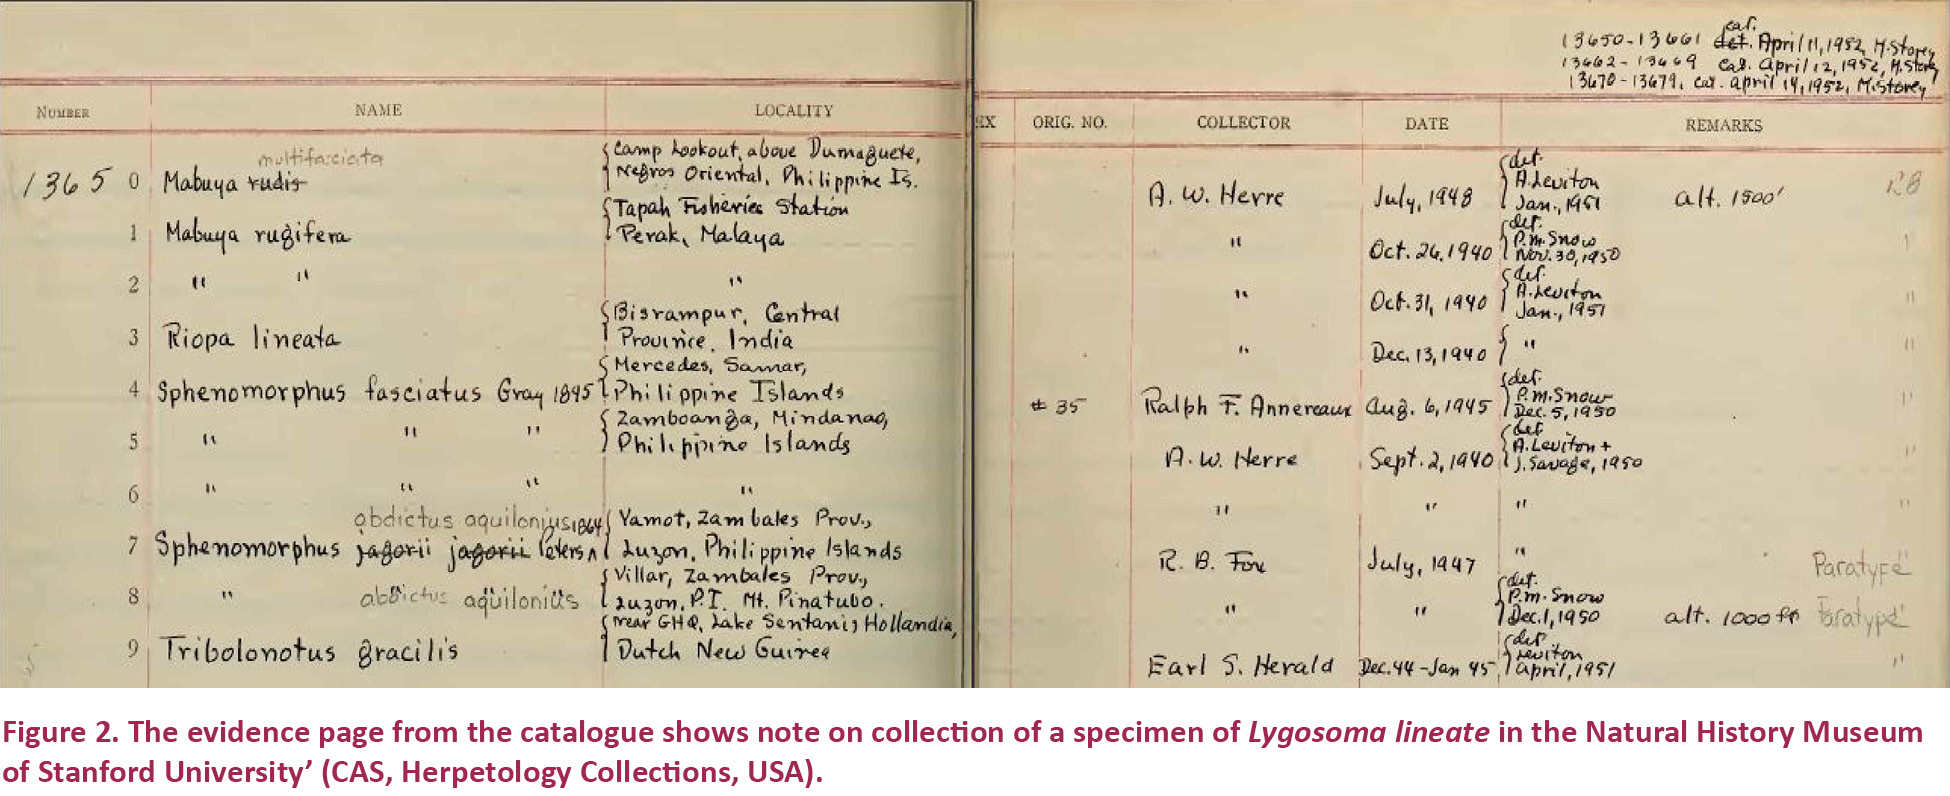 cat.
13650-13661 det. April 11, 1952, M. Storey
13662-13669 cat. April 12, 1952, M. Storey
13670-13679, cat. April 14, 1952, M. Storey
NUMBER NAME LOCALITY
EX ORIG. NO. COLLECTOR DATE REMARKS
multifasciata
13650 Mabuya rudis
Camp Lookout, above Dumaguete,
Negros Oriental, Philippine Is.
A. W. Herre July, 1948
det.
A. Leviton
Jan., 1951
alt. 1500'
1 Mabuya rugifera
Tapah Fisheries Station
Perak, Malaya
" Oct. 26, 1940
det.
P.M. Snow
Nov. 30, 1950
"
2 " " "
" Oct. 31, 1940
det.
A. Leviton
Jan., 1951
"
3 Riopa lineata
Bisrampur, Central
Province, India
" Dec. 13, 1940 " "
4 Sphenomorphus fasciatus Gray 1845
Mercedes, Samar,
Philippine Islands
# 35 Ralph F. Annereaux Aug. 6, 1945
det.
P.M. Snow
Dec. 5, 1950
"
5 " " "
Zamboanga, Mindanao,
Philippine Islands
A. W. Herre Sept. 2, 1940
det.
A. Leviton +
J. Savage, 1950
"
6 " " " "
" " " "
abdictus aquilonius 1864
7 Sphenomorphus jagorii jagorii Peters ʌ
Yamot, Zambales Prov.,
Luzon, Philippine Islands
R. B. Fox July, 1947 " Paratype
8 " abdictus aquilonius
Villar, Zambales Prov.,
Luzon, P.I. Mt. Pinatubo.
" "
det.
P.M. Snow
Dec. 1, 1950
alt. 1000 ft Paratype
9 Tribolonotus gracilis
near GHQ, Lake Sentani, Hollandia,
Dutch New Guinea
Earl S. Herald Dec. 44-Jan 45
det.
Leviton
April, 1951
"
Figure 2. The evidence page from the catalogue shows note on collection of a specimen of Lygosoma lineate in the Natural History Museum
of Stanford University’ (CAS, Herpetology Collections, USA).